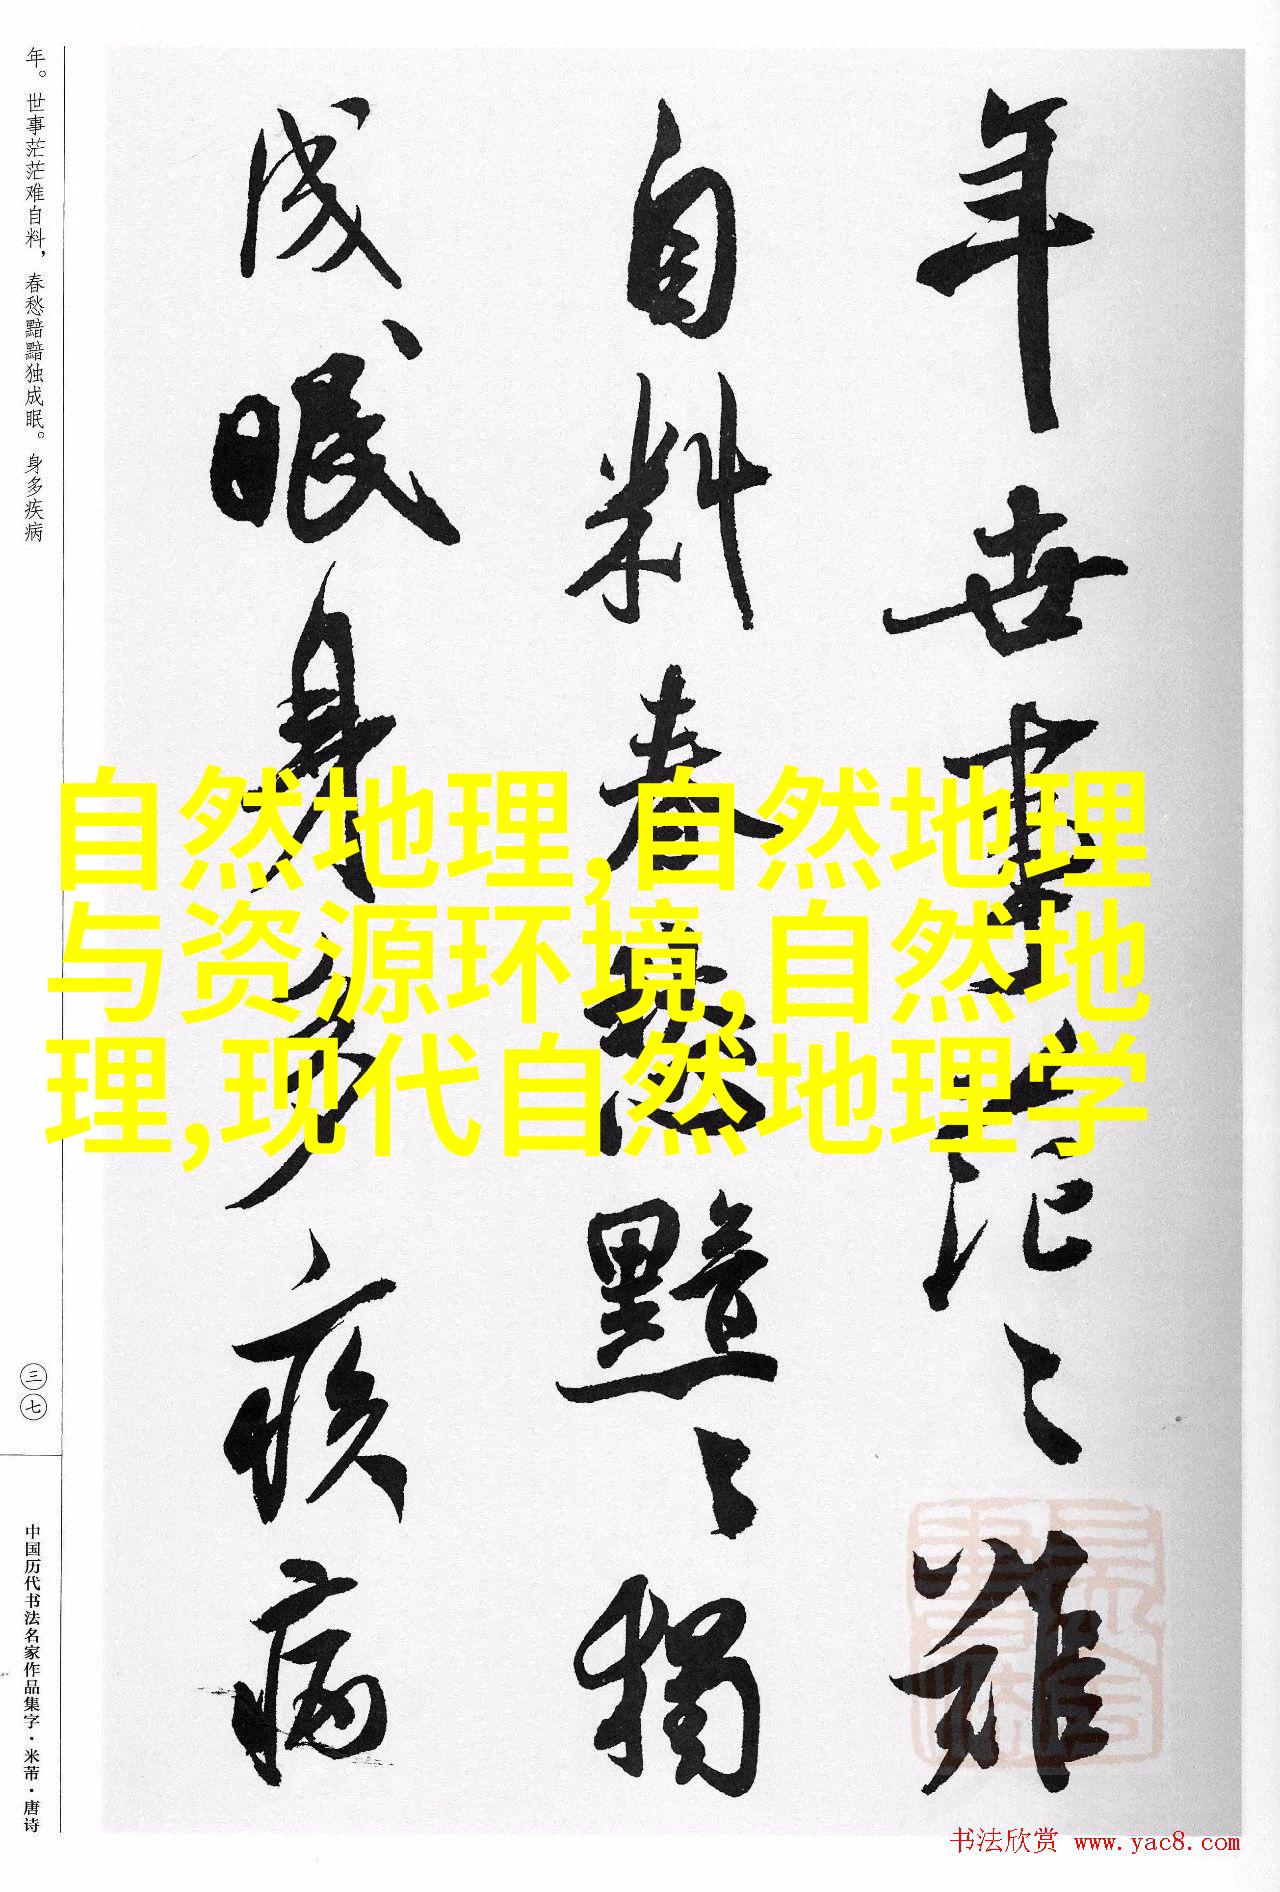 年世事茫々难
自料春愁黯々獨
成眠身多疾病
年。世事茫茫难自料，春愁黯黯独成眠。身多疾病
三七
中国历代书法名家作品集字·米芾·唐诗
自然地理,自然地理
与资源环境,自然地
理,现代自然地理学
书法欣赏 www.yac8.com